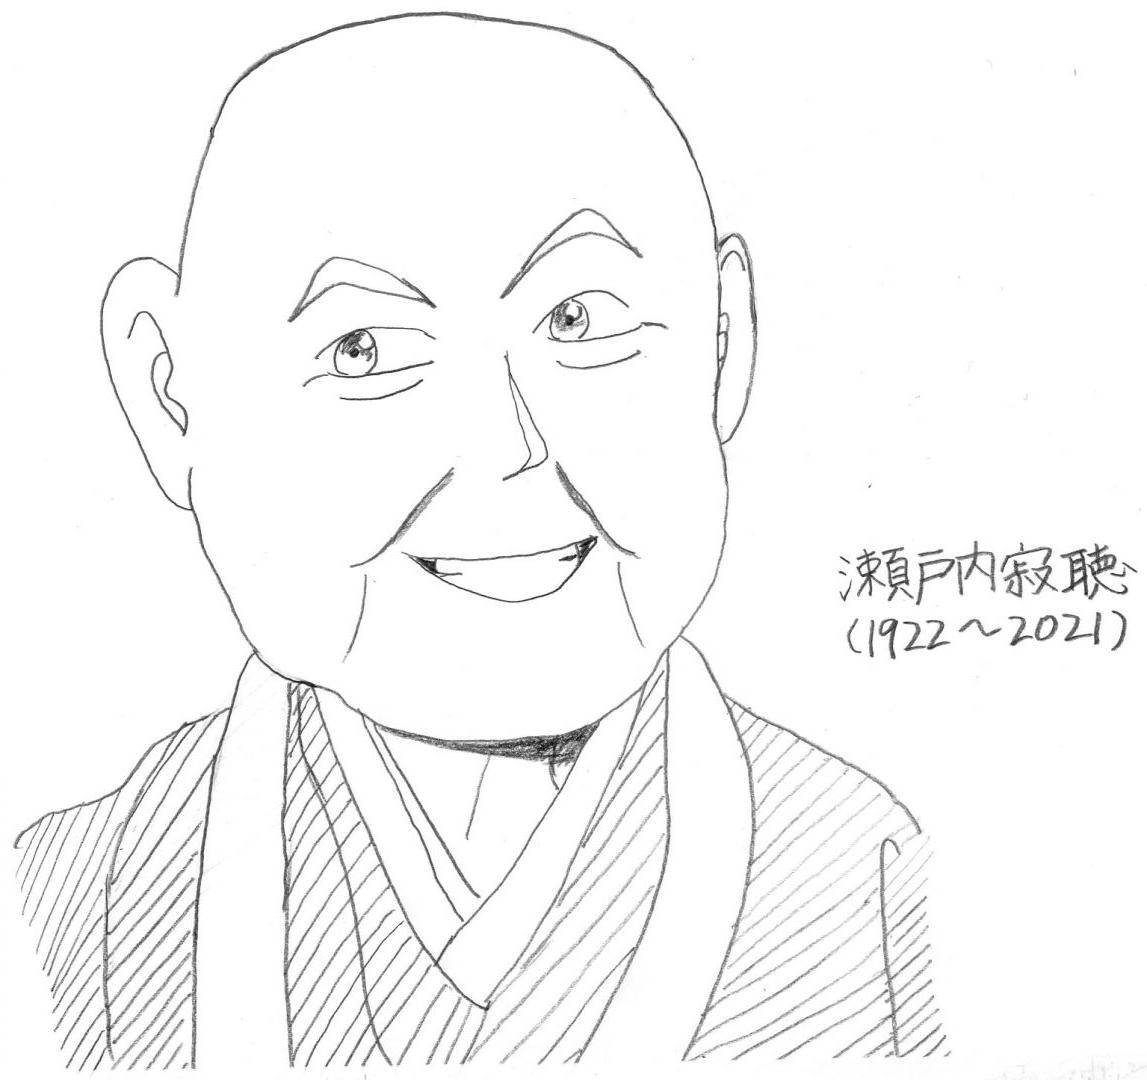 瀬戸内寂聴
(1922～2021)